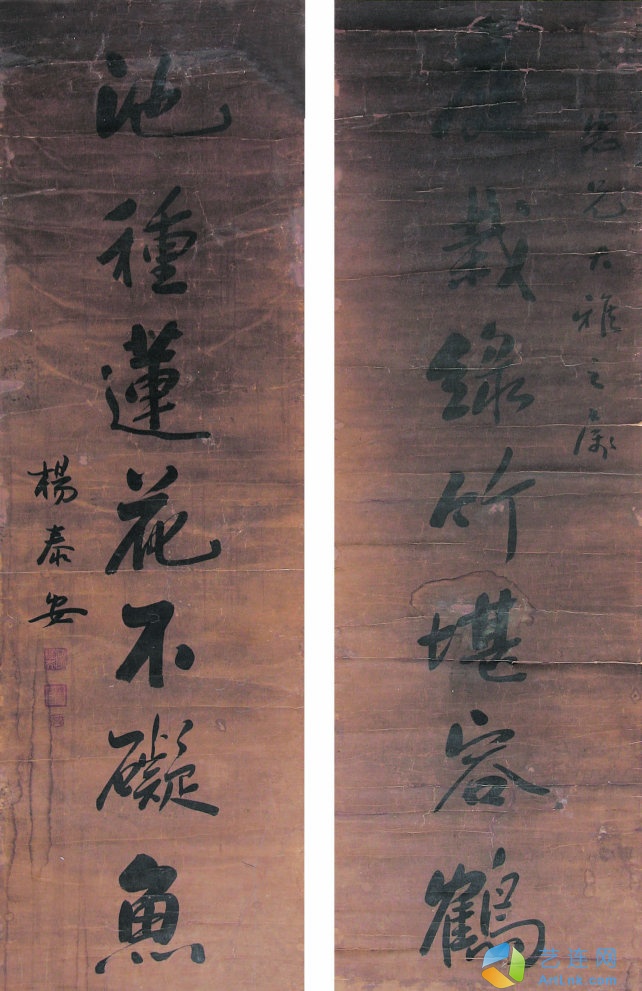 庭栽綠竹堪容鶴
兄大雅之屬
池種蓮花不礙魚
楊泰安
艺连网